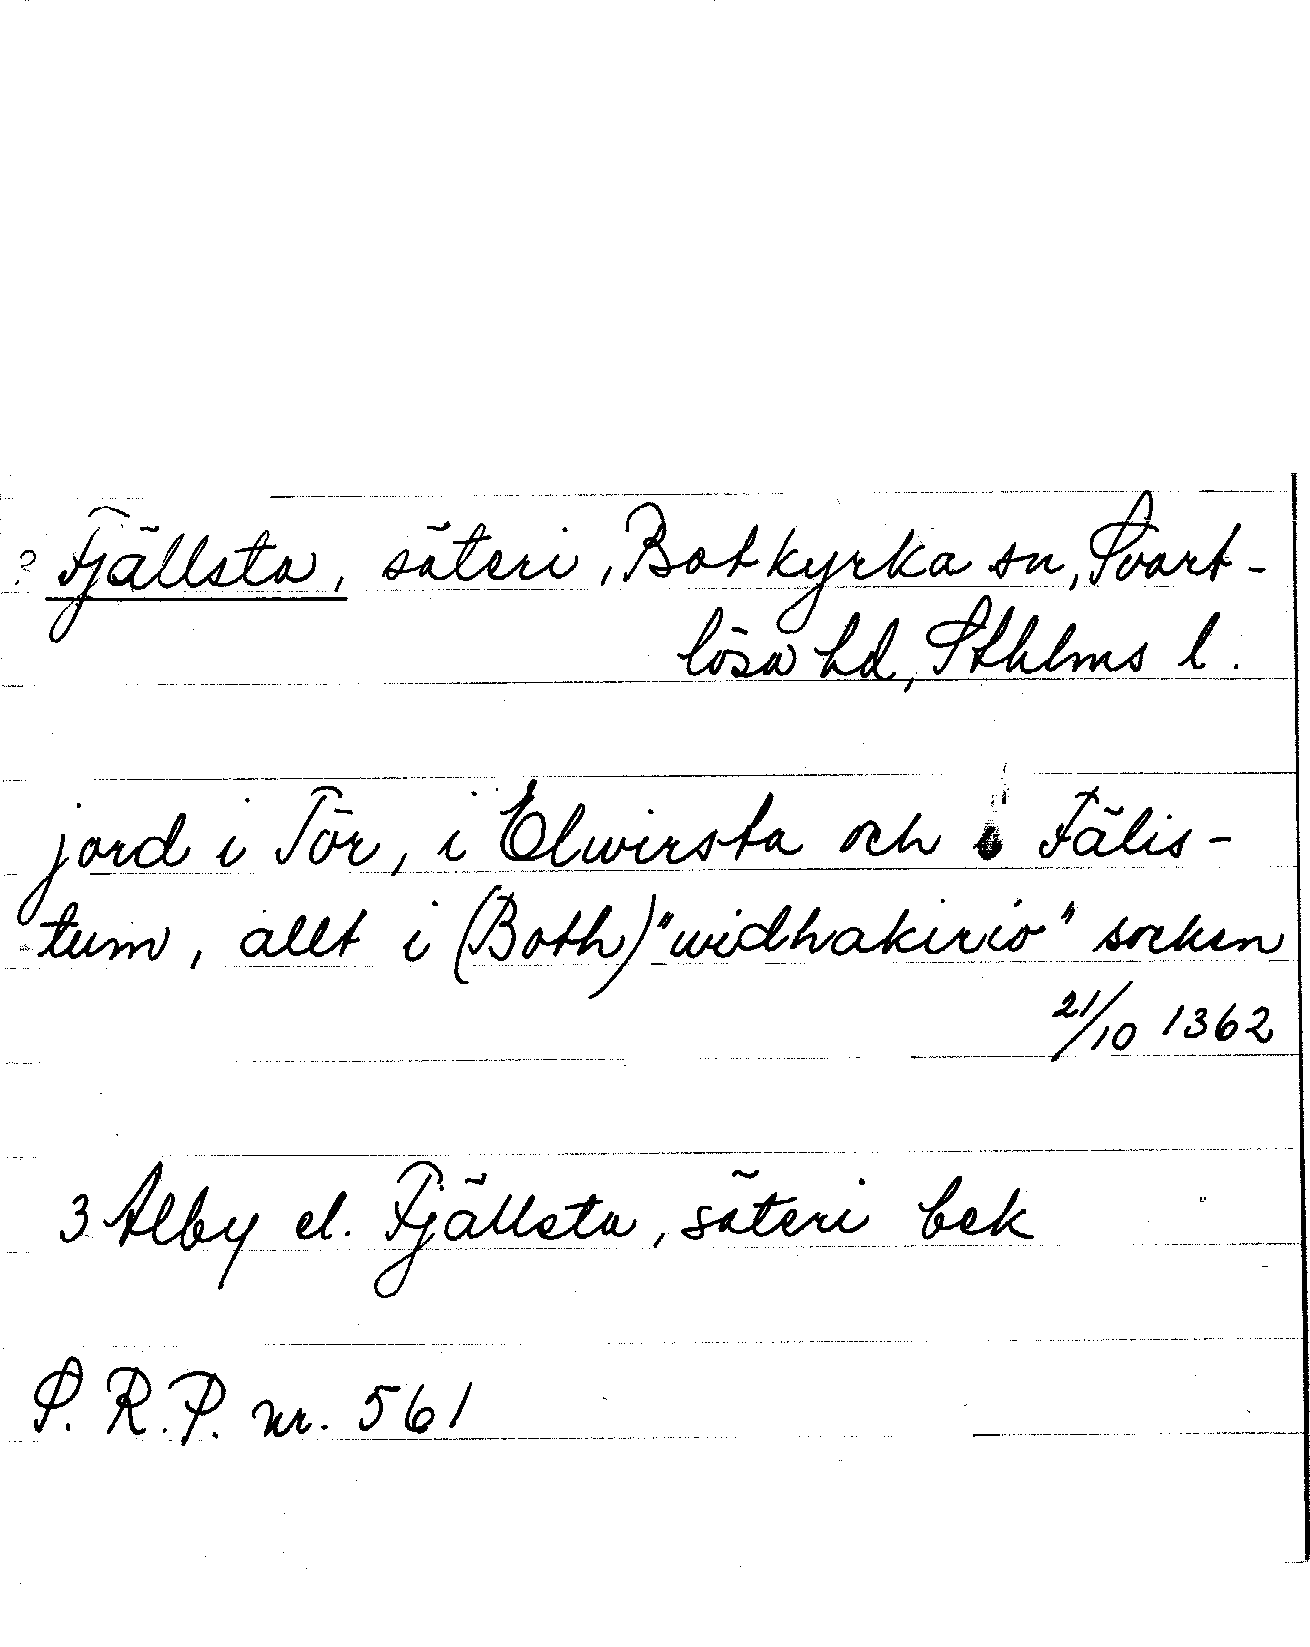 ? Fjällsta, säteri, Botkyrka sn, Svart-
lösa hd, Sthlms l.
jord i Tör, i Elwirsta och i Fälis-
tum, allt i (Both)"widhakirio" socken
21/10 1362
3 Alby el. Fjällsta, säteri bek
S.R.P. nr. 561